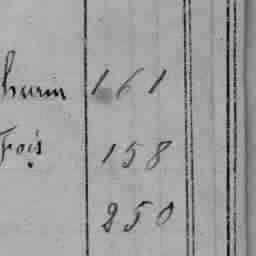 hurin 161
Fois 158
250